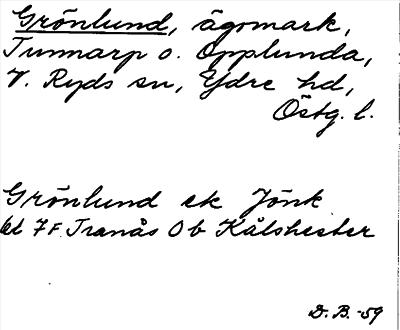 Grönlund, ägomark,
Tunnarp o. Opplunda,
V. Ryds sn, Ydre hd,
Östg. l.
Grönlund ek Jönk
bl 7F. Tranås Ob Kålshester
D. B. -59